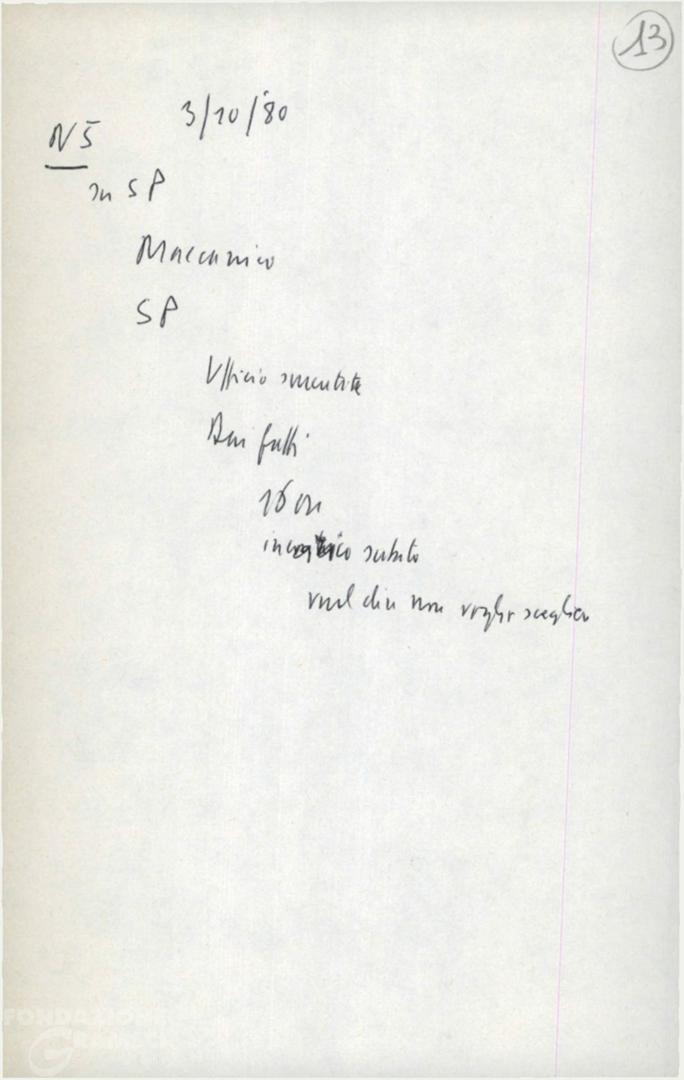 13
3/10/'80
N 5
su SP
Maccanico
SP
Ufficio smentite
Ben fatti
16 ore
incarico subito
vuol dire non voglio scegliere
FONDAZIONE
GRAMSCI